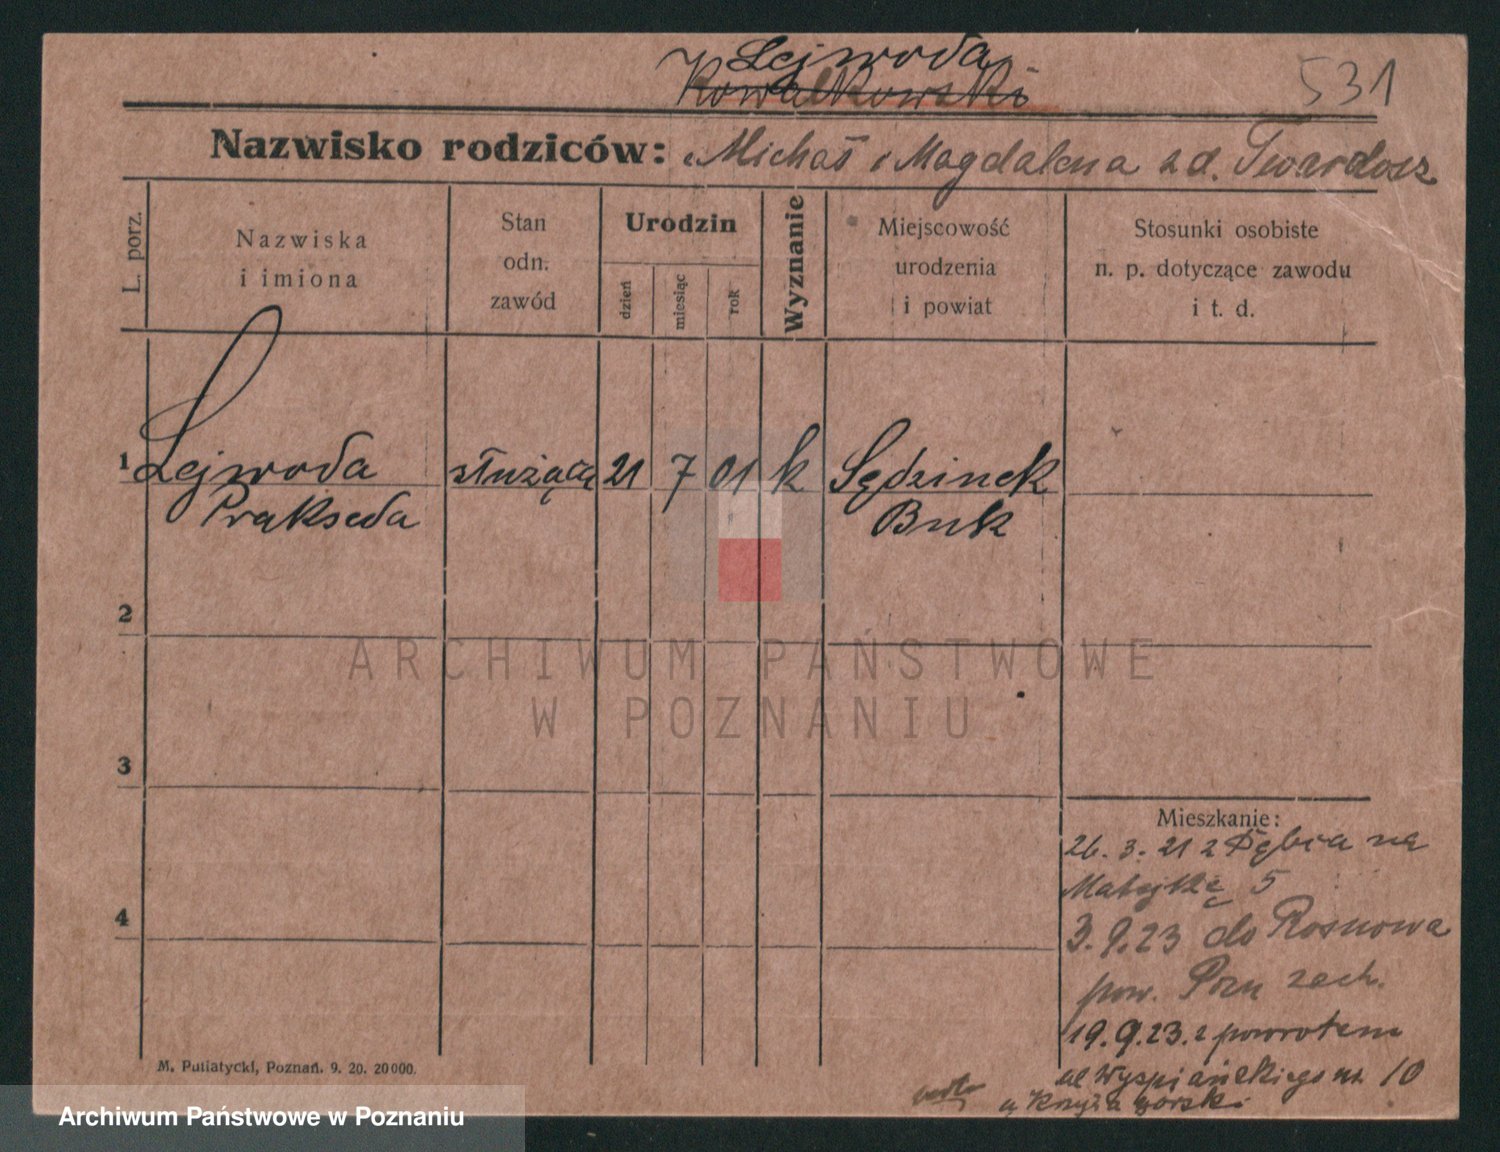 Lejwoda
Kowalkowski
531
Nazwisko rodziców: Michał i Magdalena zd. Twardosz
L. porz.
Nazwiska
i imiona
Stan
odn.
zawód
Urodzin
dzień
miesiąc
rok
Wyznanie
Miejscowość
urodzenia
i powiat
Stosunki osobiste
n. p. dotyczące zawodu
i t. d.
1 Lejwoda służąca 21 7 01 k Sędzinek
Prakseda Buk
2
3
4
Mieszkanie:
26. 3. 21 z Dębia na
Matejkę 5
3. 9. 23 do Rosnowa
pow. Pozn zach.
19. 9. 23. z powrotem
ul Wyspiańskiego nr. 10
u Krzyżagorski
M. Putiatycki, Poznań. 9. 20. 20000.
ARCHIWUM PAŃSTWOWE
W POZNANIU
Archiwum Państwowe w Poznaniu